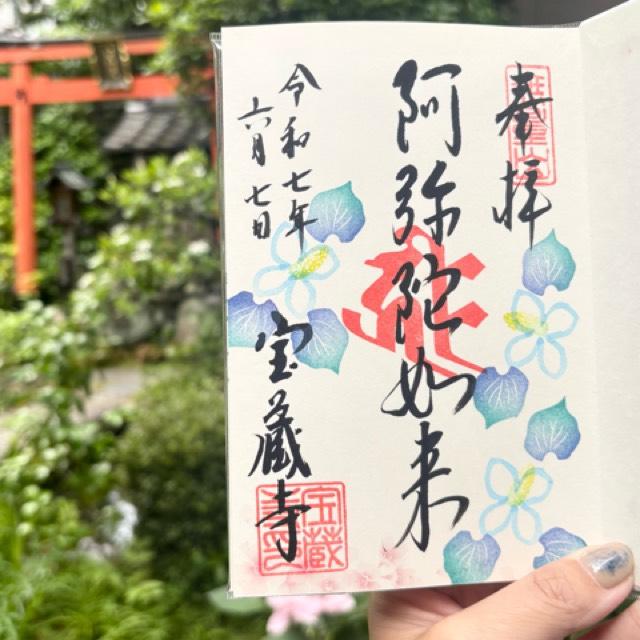 奉拝
阿弥陀如来
令和七年
六月七日
宝蔵寺